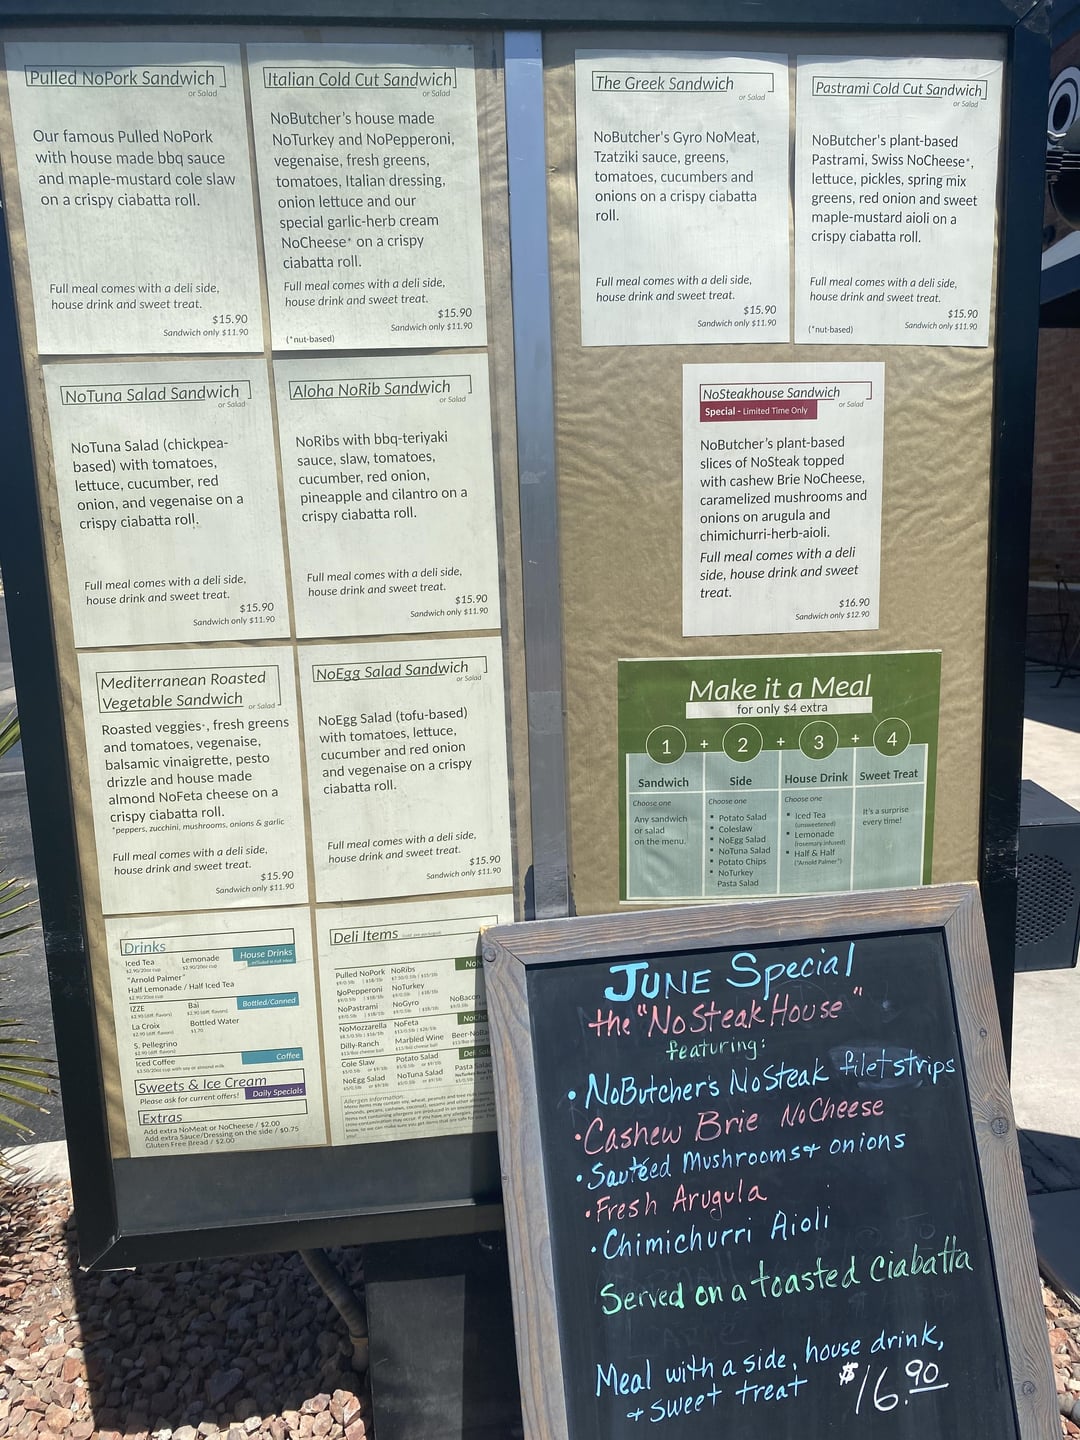 Pulled NoPork Sandwich
or Salad
Our famous Pulled NoPork
with house made bbq sauce
and maple-mustard cole slaw
on a crispy ciabatta roll.
Full meal comes with a deli side,
house drink and sweet treat.
$15.90
Sandwich only $11.90
Italian Cold Cut Sandwich
or Salad
NoButcher's house made
NoTurkey and NoPepperoni,
vegenaise, fresh greens,
tomatoes, Italian dressing,
onion lettuce and our
special garlic-herb cream
NoCheese* on a crispy
ciabatta roll.
Full meal comes with a deli side,
house drink and sweet treat.
$15.90
Sandwich only $11.90
(*nut-based)
The Greek Sandwich
or Salad
NoButcher's Gyro NoMeat,
Tzatziki sauce, greens,
tomatoes, cucumbers and
onions on a crispy ciabatta
roll.
Full meal comes with a deli side,
house drink and sweet treat.
$15.90
Sandwich only $11.90
Pastrami Cold Cut Sandwich
or Salad
NoButcher's plant-based
Pastrami, Swiss NoCheese*,
lettuce, pickles, spring mix
greens, red onion and sweet
maple-mustard aioli on a
crispy ciabatta roll.
Full meal comes with a deli side,
house drink and sweet treat.
$15.90
(*nut-based) Sandwich only $11.90
NoTuna Salad Sandwich
or Salad
NoTuna Salad (chickpea-
based) with tomatoes,
lettuce, cucumber, red
onion, and vegenaise on a
crispy ciabatta roll.
Full meal comes with a deli side,
house drink and sweet treat.
$15.90
Sandwich only $11.90
Aloha NoRib Sandwich
or Salad
NoRibs with bbq-teriyaki
sauce, slaw, tomatoes,
cucumber, red onion,
pineapple and cilantro on a
crispy ciabatta roll.
Full meal comes with a deli side,
house drink and sweet treat.
$15.90
Sandwich only $11.90
NoSteakhouse Sandwich
or Salad
Special - Limited Time Only
NoButcher's plant-based
slices of NoSteak topped
with cashew Brie NoCheese,
caramelized mushrooms and
onions on arugula and
chimichurri-herb-aioli.
Full meal comes with a deli
side, house drink and sweet
treat.
$16.90
Sandwich only $12.90
Mediterranean Roasted
Vegetable Sandwich
or Salad
Roasted veggies*, fresh greens
and tomatoes, vegenaise,
balsamic vinaigrette, pesto
drizzle and house made
almond NoFeta cheese on a
crispy ciabatta roll.
*peppers, zucchini, mushrooms, onions & garlic
Full meal comes with a deli side,
house drink and sweet treat.
$15.90
Sandwich only $11.90
NoEgg Salad Sandwich
or Salad
NoEgg Salad (tofu-based)
with tomatoes, lettuce,
cucumber and red onion
and vegenaise on a crispy
ciabatta roll.
Full meal comes with a deli side,
house drink and sweet treat.
$15.90
Sandwich only $11.90
Make it a Meal
for only $4 extra
1 + 2 + 3 + 4
Sandwich
Choose one
Any sandwich
or salad
on the menu.
Side
Choose one
▪ Potato Salad
▪ Coleslaw
▪ NoEgg Salad
▪ NoTuna Salad
▪ Potato Chips
▪ NoTurkey
Pasta Salad
House Drink
Choose one
▪ Iced Tea
(unsweetened)
▪ Lemonade
(rosemary infused)
▪ Half & Half
("Arnold Palmer")
Sweet Treat
It's a surprise
every time!
Drinks
House Drinks
Iced Tea Lemonade
$2.90/20oz cup $2.90/20oz cup
"Arnold Palmer"
Half Lemonade / Half Iced Tea
$2.90/20oz cup
Bottled/Canned
IZZE Bai
$2.90 (diff. flavors) $2.90 (diff. flavors)
La Croix Bottled Water
S. Pellegrino
Coffee
Iced Coffee
Sweets & Ice Cream
Please ask for current offers!
Daily Specials
Extras
Add extra NoMeat or NoCheese / $2.00
Add extra Sauce/Dressing on the side / $0.75
Gluten Free Bread / $2.00
Deli Items
Pulled NoPork NoRibs
NoPepperoni NoTurkey
NoPastrami NoGyro NoBacon
NoMozzarella NoFeta
Dilly-Ranch Marbled Wine
Cole Slaw Potato Salad
NoEgg Salad NoTuna Salad
Allergen Information:
JUNE Special
the "NoSteakHouse"
featuring:
• NoButcher's NoSteak filet strips
• Cashew Brie NoCheese
• Sautéed Mushrooms + onions
• Fresh Arugula
• Chimichurri Aioli
Served on a toasted Ciabatta
Meal with a side, house drink,
+ sweet treat $16.90